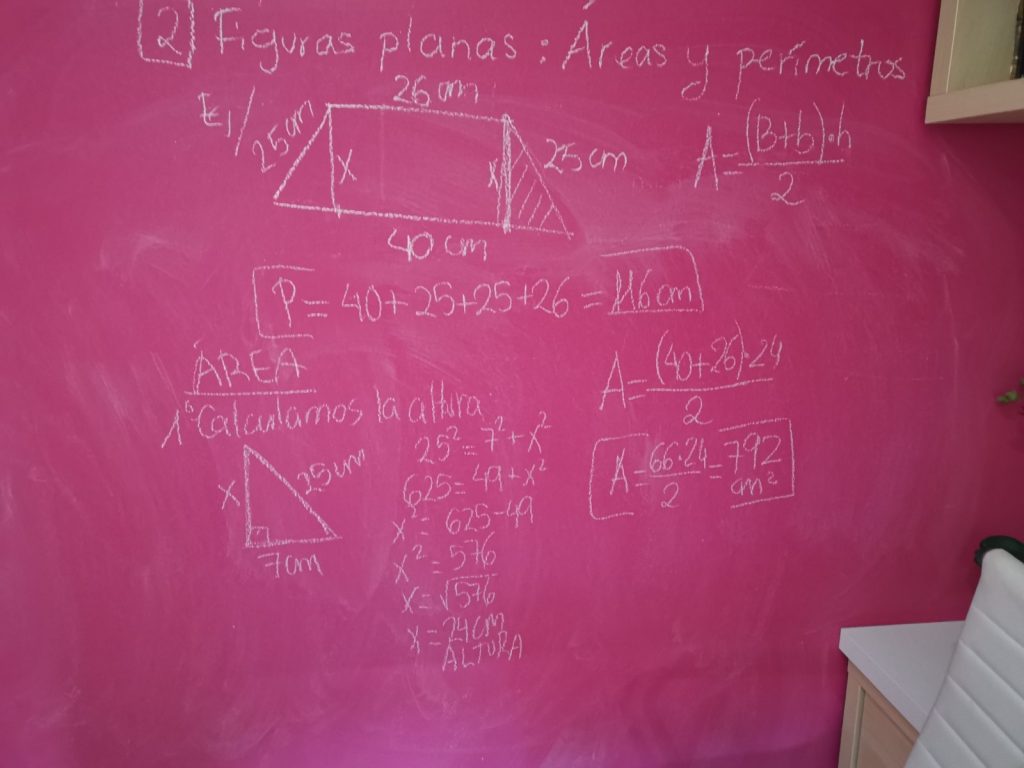 2 Figuras planas: Áreas y perímetros
E1/
26cm
25cm
x
x
25cm
40cm
A=(B+b)·h/2
P=40+25+25+26=116cm
ÁREA
1º Calculamos la altura
x
25cm
7cm
25²=7²+x²
625=49+x²
x²=625-49
x²=576
x=√576
x=24cm
ALTURA
A=(40+26)·24/2
A=66·24/2=792
cm²